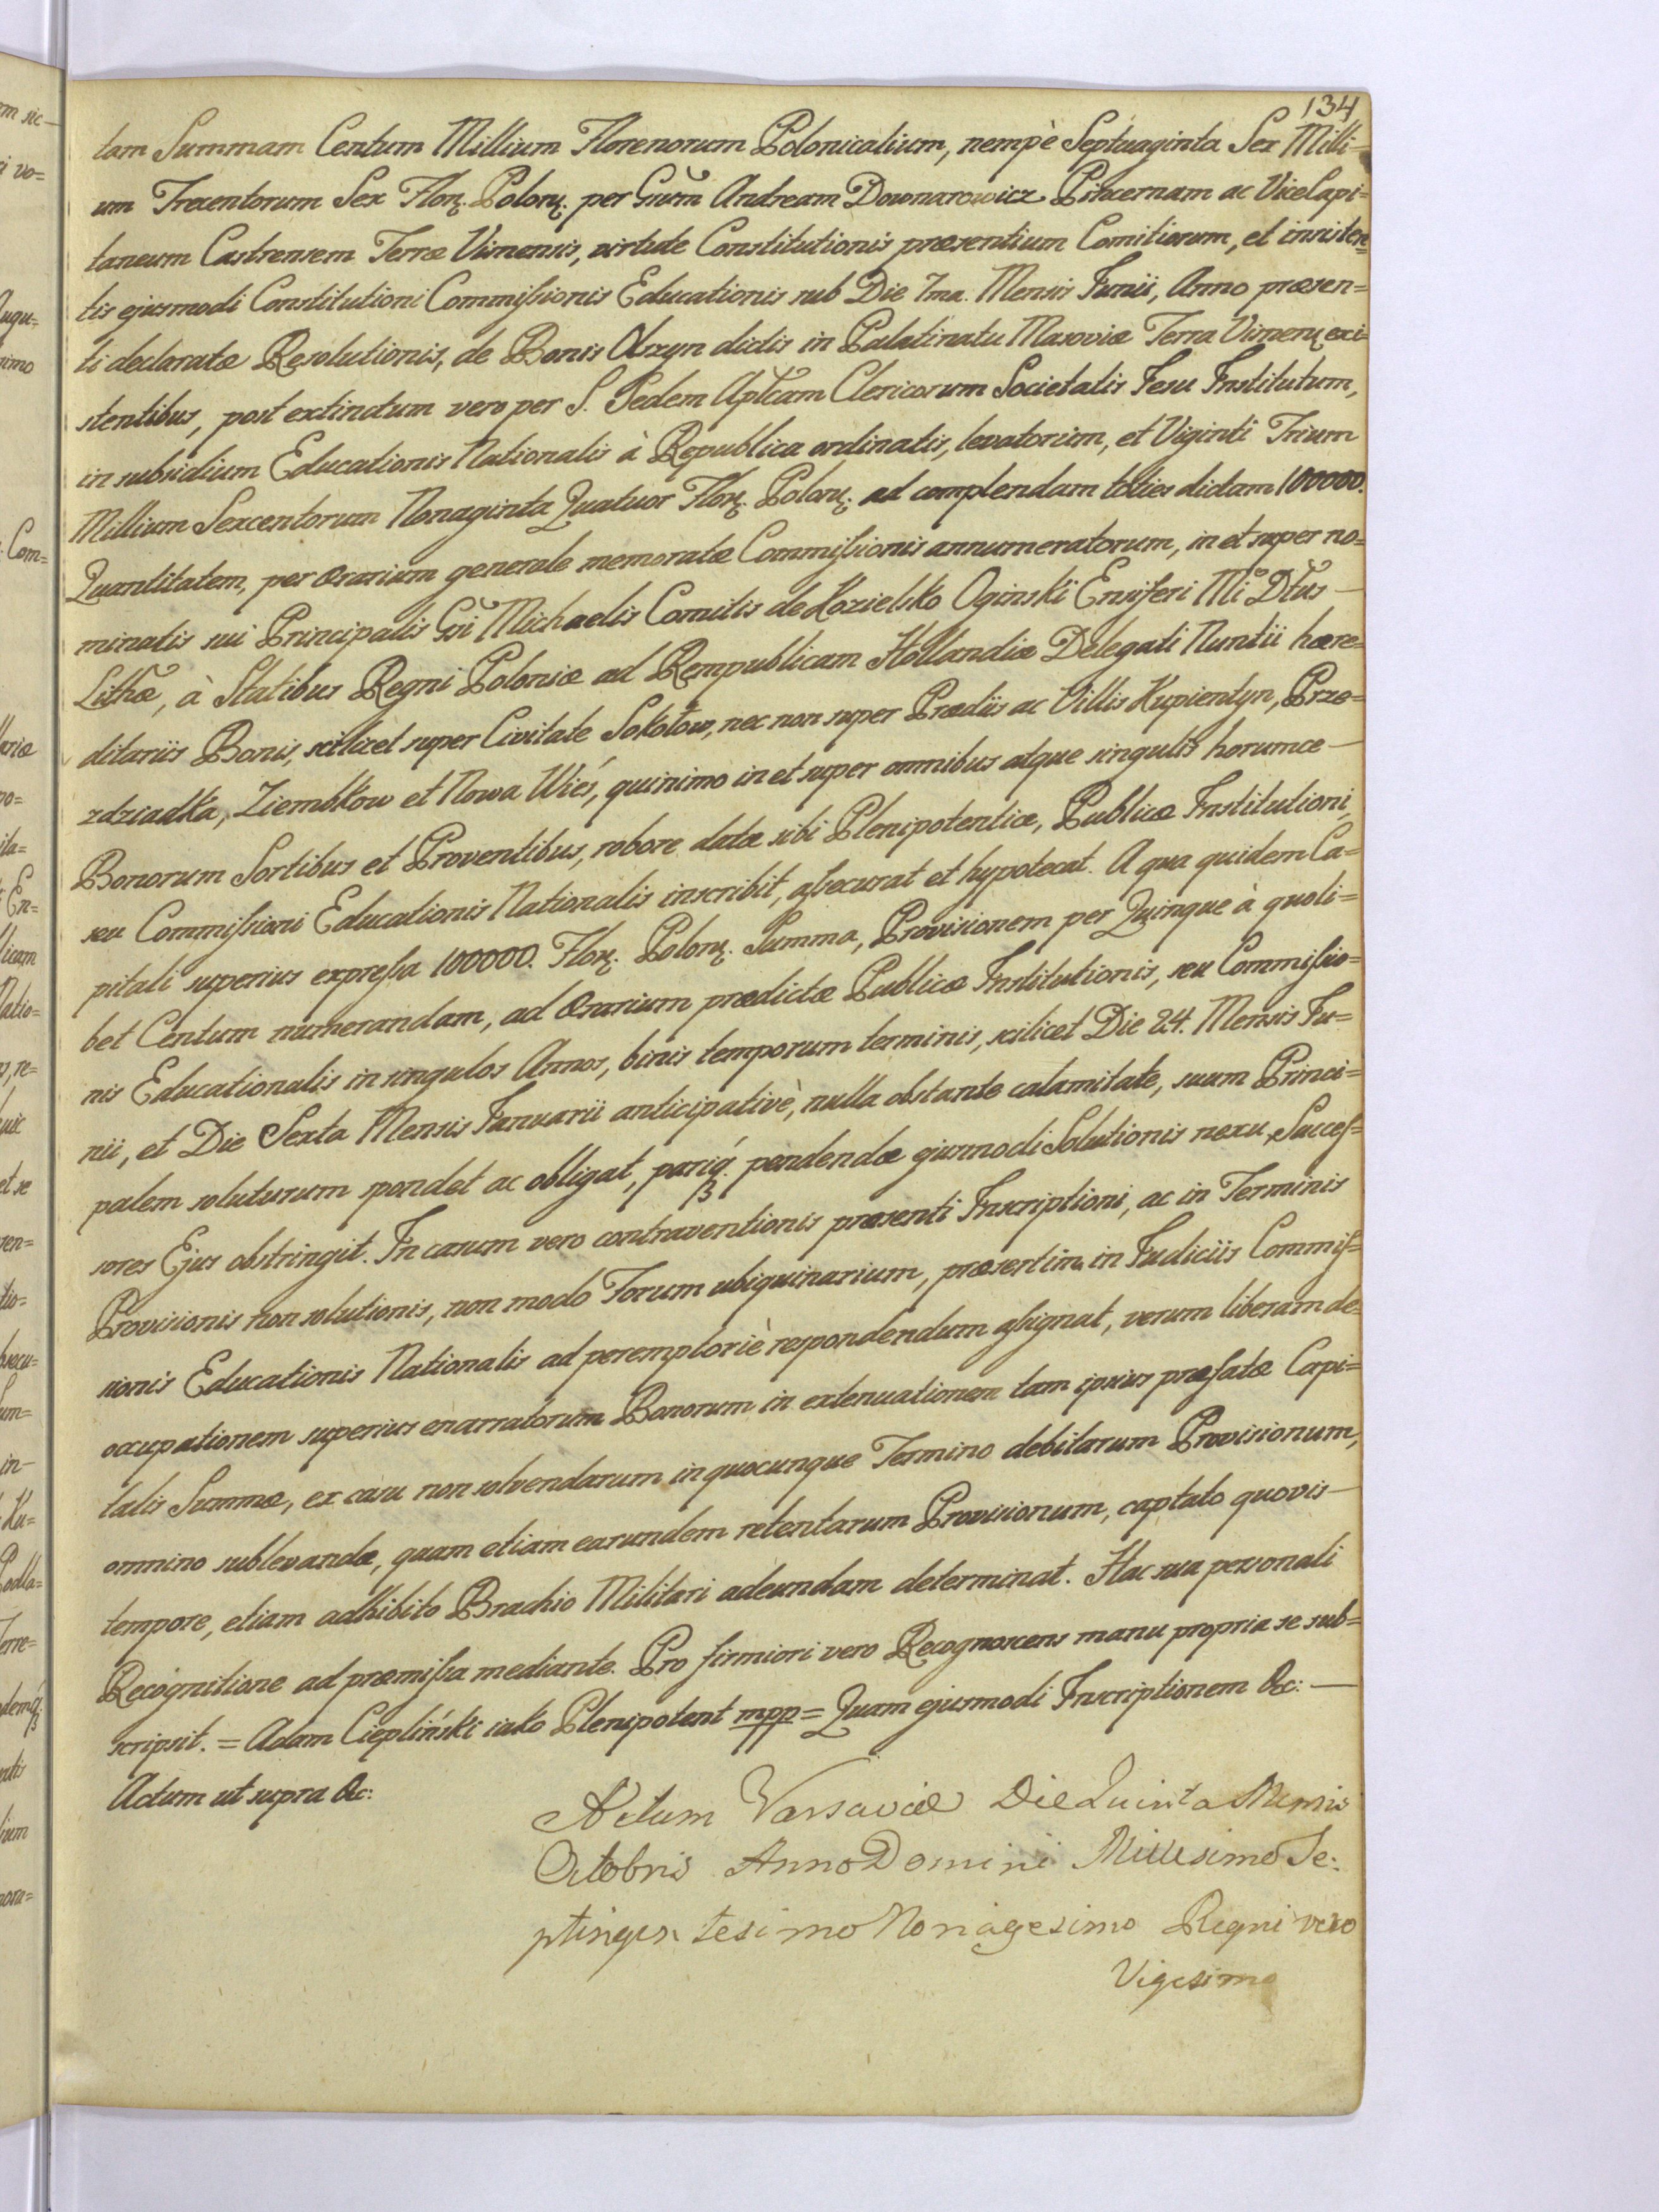 134
tam Summam Centum Millium Florenorum Polonicalium, nempè Septuaginta Sex Milli=
um Trecentorum Sex Flor. Polon. per Gnum Andream Downarowicz Pincernam ac ViceCapi=
taneum Castrensem Terræ Vimensis, virtute Constitutionis præsentium Comitiorum, et insisten=
tis ejusmodi Constitutioni Commissionis Educationis sub Die 7ma. Mensis Junii, Anno præsen=
ti declaratæ Resolutionis, de Bonis Olszyn dictis in Palatinatu Masoviæ Terra Vimen. exi=
stentibus, post extinctum vero per S. Sedem Aplcam Clericorum Societatis Jesu Institutum,
in subsidium Educationis Nationalis à Republica ordinatis, levatorum, et Viginti Trium
Millium Sexcentorum Nonaginta Quatuor Flor. Polon. ad complendam toties dictam 100000.
Quantitatem, per Ærarium generale memoratæ Commissionis annumeratorum, in et super no=
minatis sui Principalis Gsi Michaelis Comitis de Kozielsko Oginski Ensiferi Mi Dtus
Lithæ, à Statibus Regni Poloniæ ad Rempublicam Hollandiæ Delegati Nuntii hære=
ditariis Bonis, scilicet super Civitate Sokołow, nec non super Prædiis ac Villis Kupientyn, Prze=
zdziadka, Ziembkow et Nowa Wieś, quinimo in et super omnibus atque singulis horumce
Bonorum Sortibus et Proventibus, robore datæ sibi Plenipotentiæ, Publicæ Institutioni,
seu Commissioni Educationis Nationalis inscribit, assecurat et hypotecat. A qua quidem Ca=
pitali superius expressa 100000. Flor. Polon. Summa, Provisionem per Quinque à quoli=
bet Centum numerandam, ad Ærarium prædictæ Publicæ Institutionis, seu Commissio=
nis Educationalis in singulos Annos, binis temporum terminis, scilicet Die 24. Mensis Ju=
nii, et Die Sexta Mensis Januarii anticipativè, nulla obstante calamitate, suum Princi=
palem soluturum spondet ac obligat, pariq. pendendæ ejusmodi Solutionis nexu, Succes=
sores Ejus obstringit. In casum vero contraventionis præsenti Inscriptioni, ac in Terminis
Provisionis non solutionis, non modo Forum ubiquinarium, præsertim in Judiciis Commis=
sionis Educationis Nationalis ad peremptoriè respondendum assignat, verum liberam de=
occupationem superius enarratorum Bonorum in extenuationem tam ipsius præfatæ Capi=
talis Summæ, ex casu non solvendarum in quocunque Termino debitarum Provisionum,
omnino sublevandæ, quam etiam earundem retentarum Provisionum, captato quovis
tempore, etiam adhibito Brachio Militari adeundam determinat. Hac sua personali
Recognitione ad præmissa mediante. Pro firmiori vero Recognoscens manu propria se sub=
scripsit. = Adam Ciepliński iako Plenipotent mpp = Quam ejusmodi Inscriptionem &c: —
Actum ut supra &c:
Actum Varsaviæ Die Quinta Mensis
Octobris Anno Domini Millesimo Se:
ptingentesimo Nonagesimo Regni vero
Vigesimo